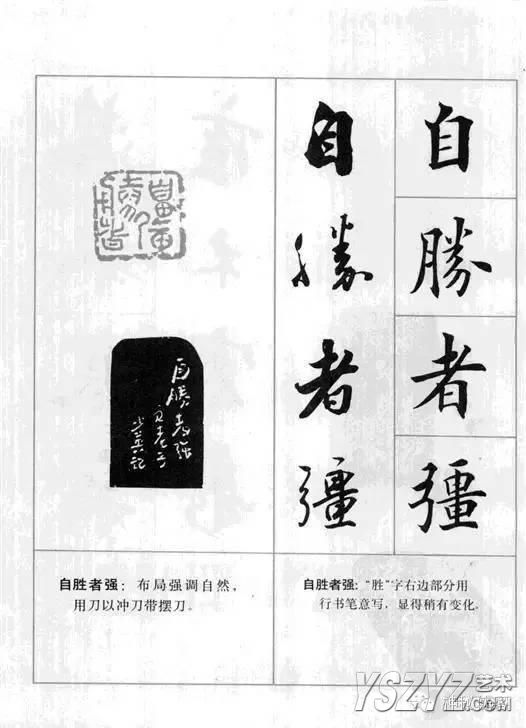 自
勝
者
彊
自
勝
者
彊
自勝者强
自胜者强：“胜”字右边部分用
行书笔意写，显得稍有变化。
自胜者强：布局强调自然，
用刀以冲刀带摆刀。
YSZYZ艺术
.COM